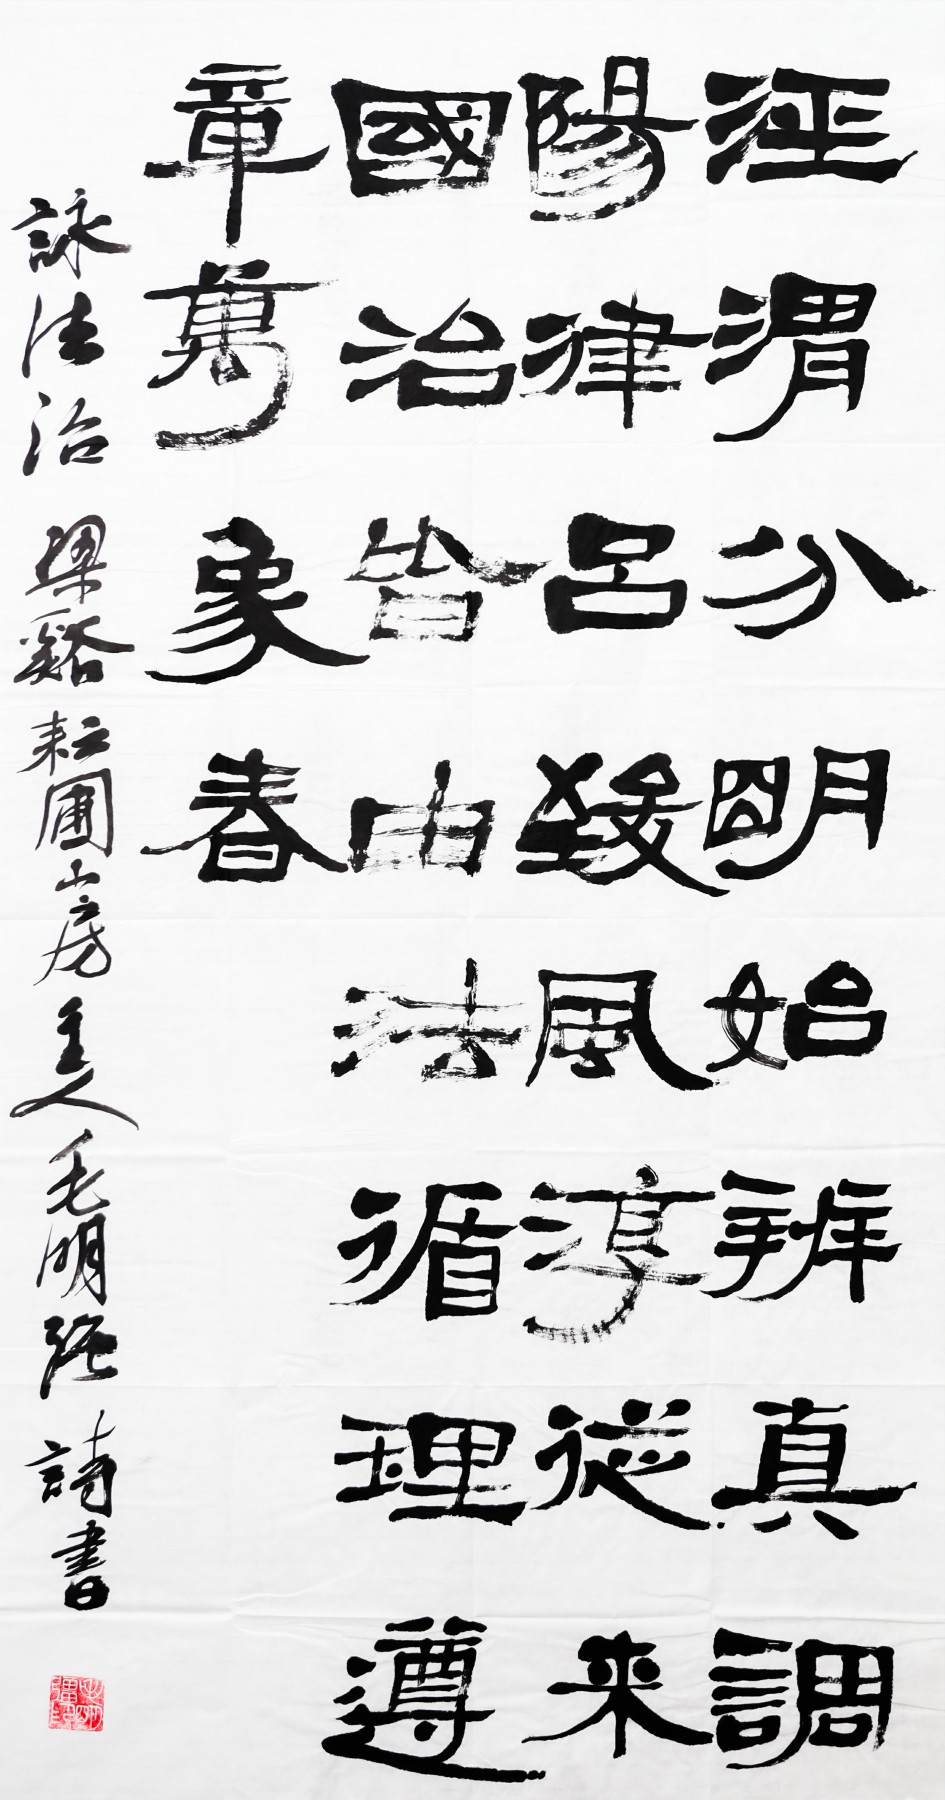 涇渭分明始辨真調
陽律呂致風淳從來
國治皆由法循理遵
章萬象春
詠法治 梁谿耘圃山房主人毛明強詩書